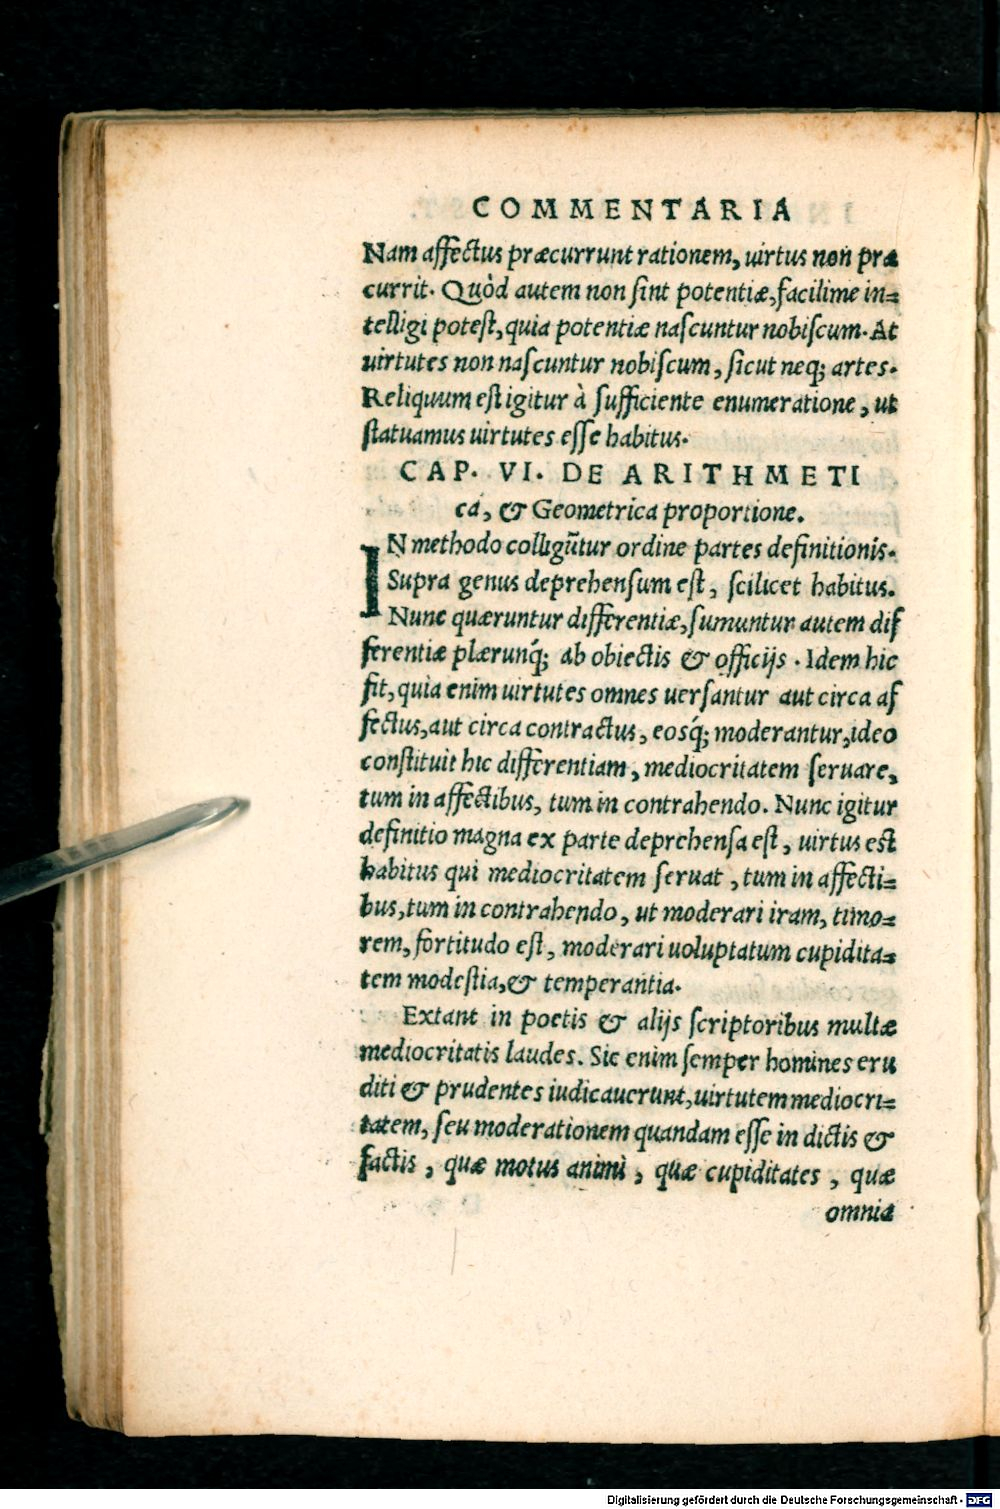 COMMENTARIA
Nam affectus præcurrunt rationem, uirtus non præ
currit. Quòd autem non ſint potentiæ, facilime in=
telligi poteſt, quia potentiæ naſcuntur nobiſcum. At
uirtutes non naſcuntur nobiſcum, ſicut neq; artes.
Reliquum eſt igitur à ſufficiente enumeratione, ut
ſtatuamus uirtutes eſſe habitus.
CAP. VI. DE ARITHMETI
ca, & Geometrica proportione.
IN methodo colligũtur ordine partes definitionis.
Supra genus deprehenſum eſt, ſcilicet habitus.
Nunc quæruntur differentiæ, ſumuntur autem dif
ferentiæ plærunq́; ab obiectis & officijs. Idem hic
fit, quia enim uirtutes omnes uerſantur aut circa af
fectus, aut circa contractus, eosq́; moderantur, ideo
conſtituit hic differentiam, mediocritatem ſeruare,
tum in affectibus, tum in contrahendo. Nunc igitur
definitio magna ex parte deprehenſa eſt, uirtus est
habitus qui mediocritatem ſeruat, tum in affecti=
bus, tum in contrahendo, ut moderari iram, timo=
rem, fortitudo eſt, moderari uoluptatum cupidita=
tem modeſtia, & temperantia.
Extant in poetis & alijs ſcriptoribus multæ
mediocritatis laudes. Sic enim ſemper homines eru
diti & prudentes iudicauerunt, uirtutem mediocri=
tatem, ſeu moderationem quandam eſſe in dictis &
factis, quæ motus animi, quæ cupiditates, quæ
omnia
Digitalisierung gefördert durch die Deutsche Forschungsgemeinschaft - DFG